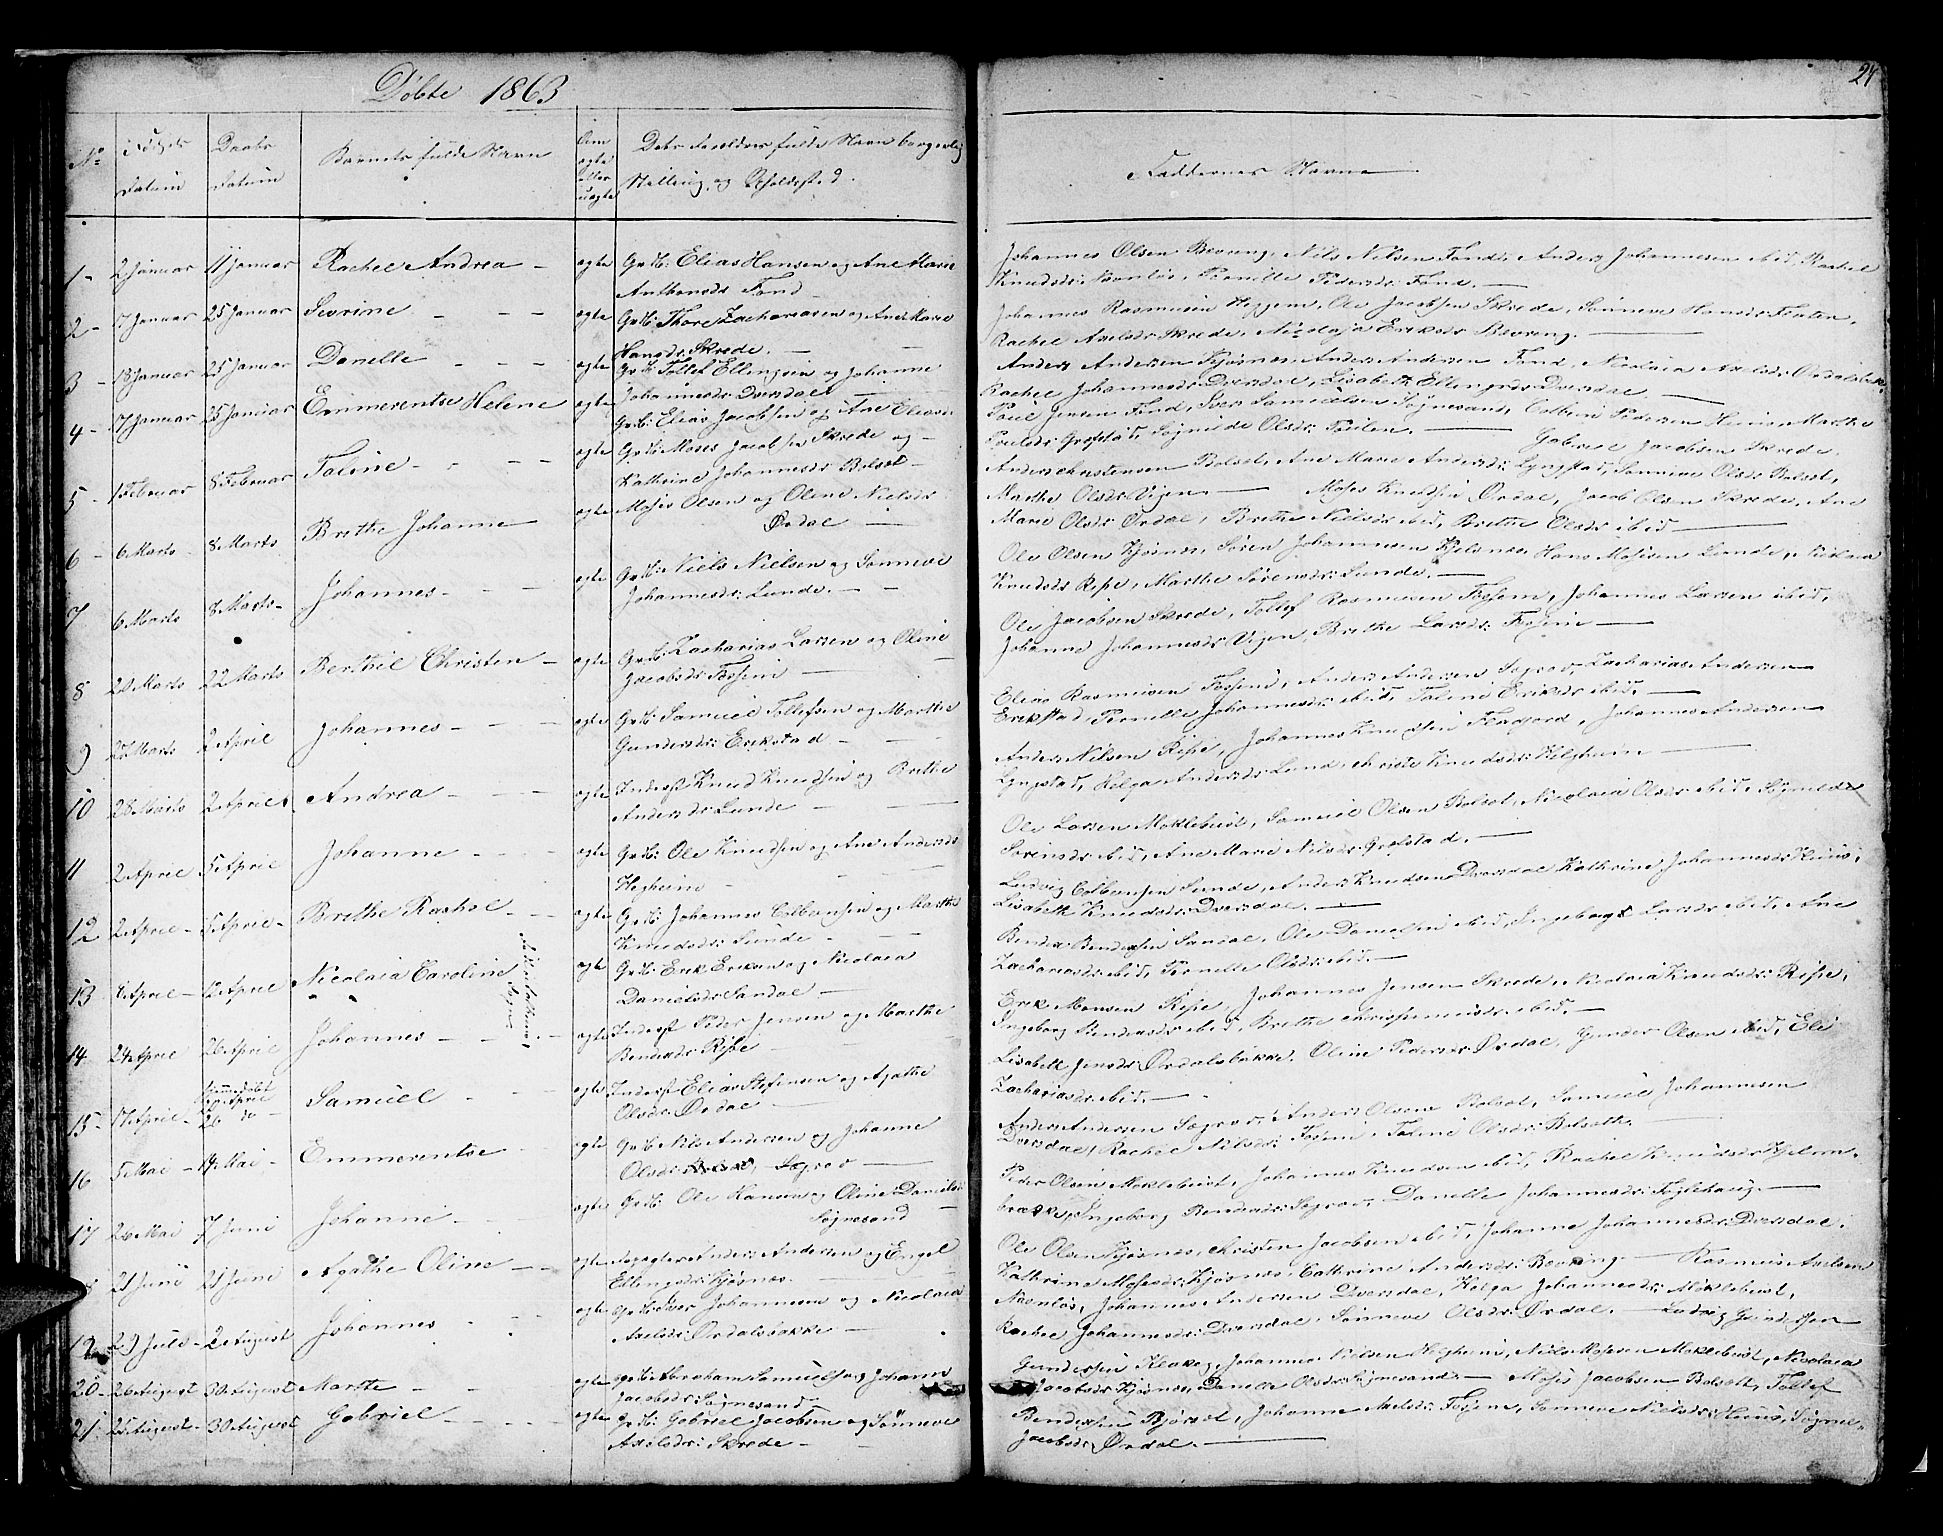 Døbte 1863
24
No
Fødsels Datum
Daabs Datum
Barnets fulde Navn
Om ægte eller uægte
Dets Forældres fulde Navn borgerlig
Stilling og Opholdsted.
Faddernes Navne
1 - 2 Januar 11 Januar Rachel Andrea - ægte Grdb: Elias Hansen og Ane Marie
Anthonsdr Fond
2 - 7 Januar 25 Januar Sevrine - - - ægte Grdb: Thore Zachariasen og Ane Marie
Hansdr: Skrede.
3 - 18 Januar 25 Januar Danelle - - - ægte Grdb: Tollef Ellingsen og Johanne
Johannesdr: Dvrsdal
4 - 17 Januar 25 Januar Emmerentse Helene ægte Grdb: Elias Jacobsen og Ane Elias
5 - 1 Februar 8 Februar Taline - - - ægte Grdb: Moses Jacobsen Skrede og
Kathrine Johannesdr: Bolset
6 - 6 Marts - 8 Marts Brethe Johanne ægte Moses Olsen og Oline Nielsdr
Ørdal
7 6 Marts 8 Marts - Johannes - - - ægte Grdb: Niels Nielsen og Sønneve
Johannesdr: Lunde.
8 20 Marts 22 Marts Berthil Christen - ægte Grdb: Zacharias Larsen og Oline
Jacobsdr: Fossem
9 25 Marts 2 April Johannes - - - ægte Grdb: Samuel Tollefsen og Marthe
Gundersdr: Erikstad
10 28 Marts 2 April Andrea - - - ægte Inderst Knud Knudsen og Brethe
Andersdr Lunde
11 2 April 5 April Johanne - - - ægte Grdb: Ole Knudsen og Ane Andersdr
Hegheim
12 2 April - 5 April - Brethe Rachel - - ægte Grdb: Johannes Colbensen og Marthe
Knudsdr: Sunde
13 8 April - 12 April Nicolaia Caroline ægte Grdb: Erik Eriksen og Nicolaia
Danielsdr Sandal
14 24 April 26 April Johannes - - - ægte Inderst Peder Jensen og Marthe
Bendixdr Ripe
15 - 17 April - hjemmedøbt
April
26 do - Samuel - - ægte Inderst Elias Stefensen og Agathe
Olsdr: Ørdal
16 5 Mai - 14 Mai - Emmerentse - ægte Grdb: Nils Andersen og Johanne
Olsdr: Søgrov
17 26 Mai 7 Juni Johanne - - - ægte Grdb: Ole Hansen og Oline Daniels
Søgnesand
21 Juni 21 Juni Agathe Oline - - ægte Anders Andersen og Engel
Ellingsdr: Kjøsnæs
19 29 Juli - 2 August Johannes - - ægte Grdb: Iver Johannesen og Nicolaia
Axelsdr: Ørdalsbakke
20 - 26 August 30 August Marthe - - ægte Grdb: Abraham Samuelsen og Johanne
Jacobsdr: Søgnesand
21 25 August - 30 August Gabriel - - - ægte Grdb: Gabriel Jacobsen og Sønneve
Axelsdr: Skrede -
Johannes Olsen Bevreng, Nils Nilsen Fond, Anders Johannesen ibid, Rachel
Knudsdr: Naonløs, Pernille Pedersdr: Fond.
Johannes Rasmusen Heggem, Ole Jacobsen Skrede, Sønneve Hansdr: Floten,
Rachel Axelsdr Skrede, Nicolaja Eriksdr Bevreng.
Anders Andersen Kjøsnæs, Anders Andersen Fond, Nicolaia Axelsdr Ørdalsbak.
Rachel Johannesdr Dvrsdal, Lisabeth Ellingsdr Dvrsdal
Paul Jensen Fond, Iver Samuelsen Søgnesand, Colben Pedersen Huus, Marthe
Paulsdr: Grofstad, Søgnide Olsdr: Foilen. Gabriel Jacobsen Skrede,
Anders Christensen Bolset, Ane Marie Andersdr: Lyngstad, Sønneve Olsdr Bolset,
Marthe Olsdr Vigen. Moses Knudsen Ørdal, Jacob Olsen Skrede, Ane
Marie Olsdr: Ørdal, Brethe Nielsdr ibid, Brethe Olsdr ibid
Ole Olsen Kjøsnæs, Søren Johannesen Kjelsnæs, Hans Mosesen Lunde, Nikolaia
Knudsdr Ripe, Marthe Sørensdr: Lunde.
Ole Jacobsen Skrede, Tollef Rasmusen Fossem, Johannes Larsen ibid,
Johanne Johannesdr Vigen, Brethe Larsdr: Fossem
Elias Rasmusen Fossem, Anders Andersen Søgrov, Zacharias Andersen
Erikstad, Pernille Johannesdr: ibid, Taline Eriksdr ibid.
Anders Nilsen Ripe, Johannes Knudsen Flugeord, Johannes Andersen
Lyngstad, Helga Andersdr Lund, Christe Knudsdr: Helgheim
Ole Larsen Moklebust, Samuel Olsen Bolset, Nicolaia Olsdr ibid, Søgnide
Sørensdr: ibid, Ane Marie Nilsdr: Grofstad.
Ludvig Colbensen Sunde, Anders Knudsen Dvrsdal, Kathrine Johannesdr: Huus,
Lisabeth Knudsdr: Dvrsdal.
Bendix Bendixsen Sandal, Ole Danielsen ibid, Ingeborg Larsdr: ibid, Ane
Zachariasdr: ibid, Pernille Olsdr: ibid.
Erik Monsen Ripe, Johannes Jensen Skrede, Nicolaia Knudsdr: Ripe,
Ingeborg Bendixdr ibid, Brethe ibid.
Lisabeth Jensdr: Ørdalsbakke, Oline Pedersdr: Ørdal, Gunder Olsen ibid, Eli
Zachariasdr: ibid.
Anders Andersen Søgrov, Anders Olsen Bolset, Samuel Johannesen
Dvrsdal, Rachel Nilsdr: Fossem, Taline Olsdr: Bolseth.
Peder Olsen Moklebust, Johannes Knudsen ibid, Rachel Knudsdr: Hjelm-
brække, Ingeborg Bendixdr: Søgrov, Danelle Johannesdr: Foglehaug.
Ole Olsen Kjøsnæs, Christen Jacobsen ibid, Johanne Johannesdr: Dvrsdal,
Kathrine Mosesdr: Kjøsnæs, Cathrine Andersdr: Bevreng. Rasmus Axelsen
Naonløs, Johannes Andersen Dvrsdal, Helga Johannesdr: Moklebust,
Rachel Johannesdr: Dvrsdal, Sønneve Olsdr: Ørdal. Ludvig Gundersen
Gundersen Klakeg, Johannes Nielsen Hegheim, Nils Mosesen Moklebust, Nicolaia
Jacobsdr: Kjøsnæs, Danelle Olsdr: Søgnesand. Moses Jacobsen Bolset, Tollef
Bendixsen Bjørset, Johanne Axelsdr: Fossem, Sønneve Nielsdr: Huus, Søgne-
Jacobsdr: Ørdal.